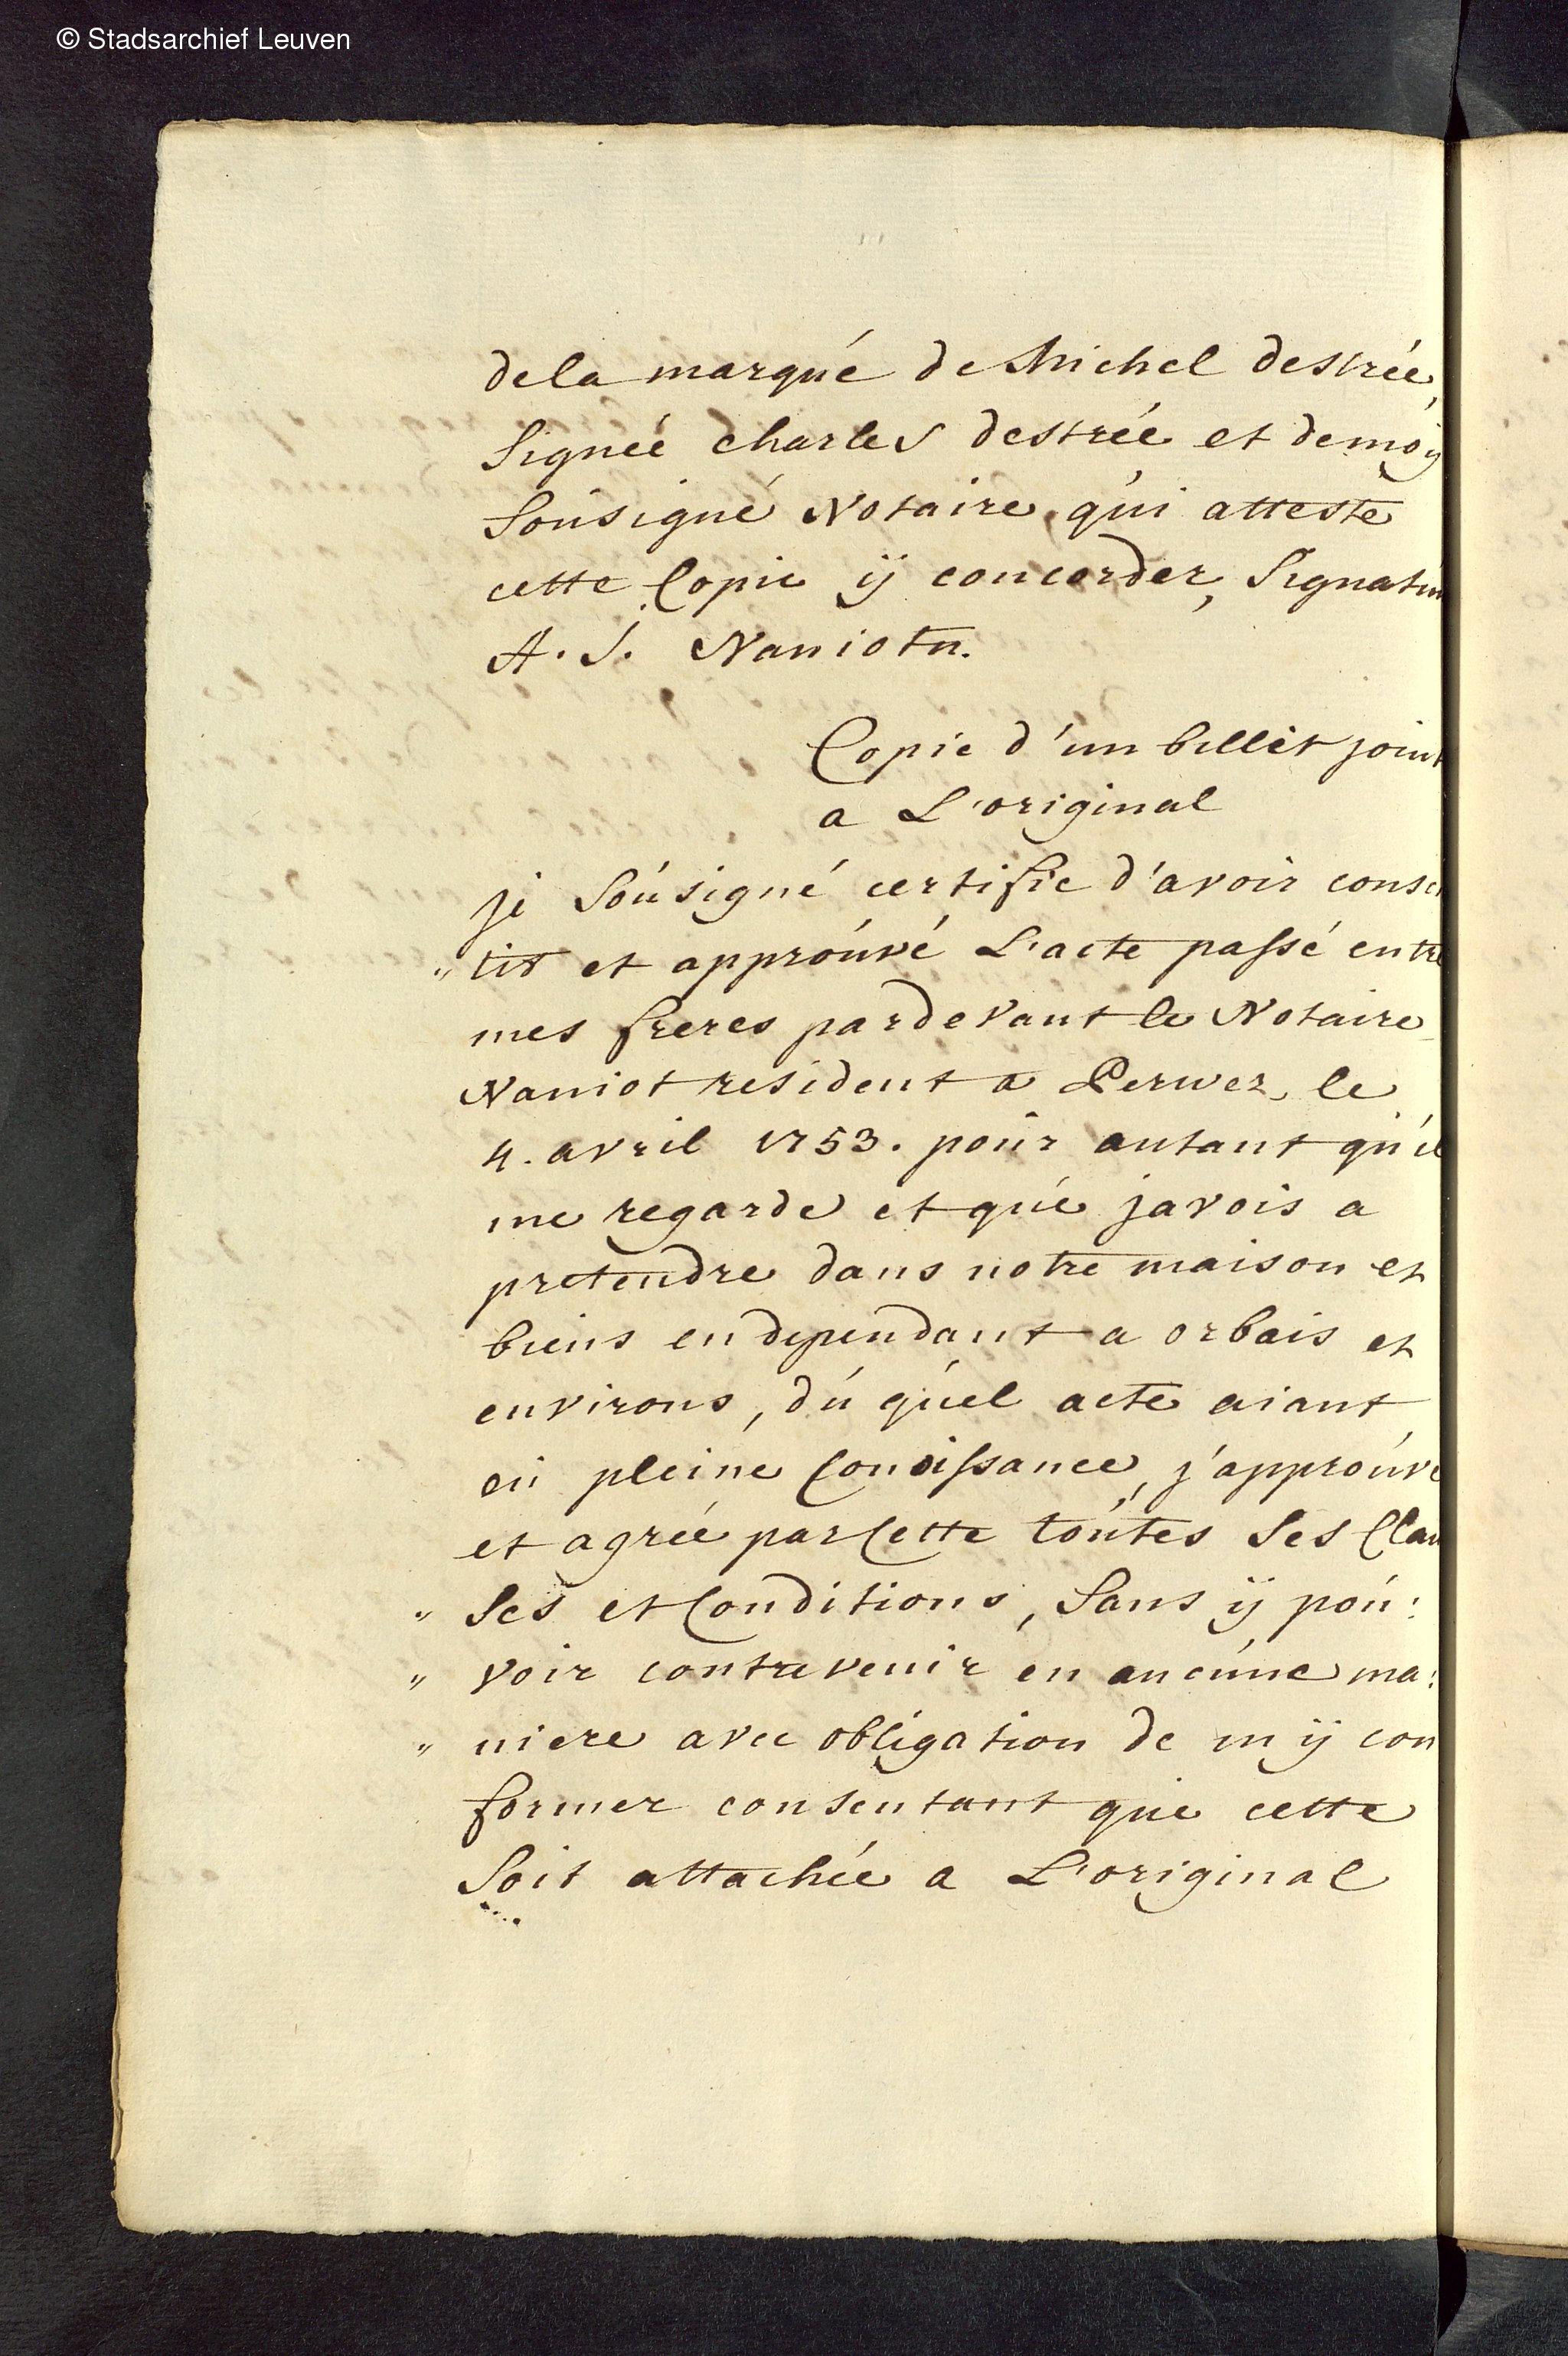 © Stadsarchief Leuven
dela marqué de Michel destrée,
Signeé charles destrée et demoÿ
Sousigné Notaire qui atteste
cette Copie ÿ concorder, Signatu
A. J. Naniot n.
Copie d'un billèt joint
a L'original
je Sousigné certifie d'avoir consen
„ tit et approuvé L'acte passé entre
mes freres pardevant le Notaire
Naniot resident a Perwez, le
4. avril 1753. pour autant qu'il
me regarde et que javois a
pretendre dans notre maison et
biens endependant a orbais et
environs, du quel acte aiant
eu pleine Conoissance, j'approuve
et agrée par Cette toutes Ses Clau
„ Ses et Conditions, Sans ÿ pou:
„ voir contrevenir en aucune ma:
„ niere avec obligation de m ÿ con
former consentant que cette
Soit attachée a L'original